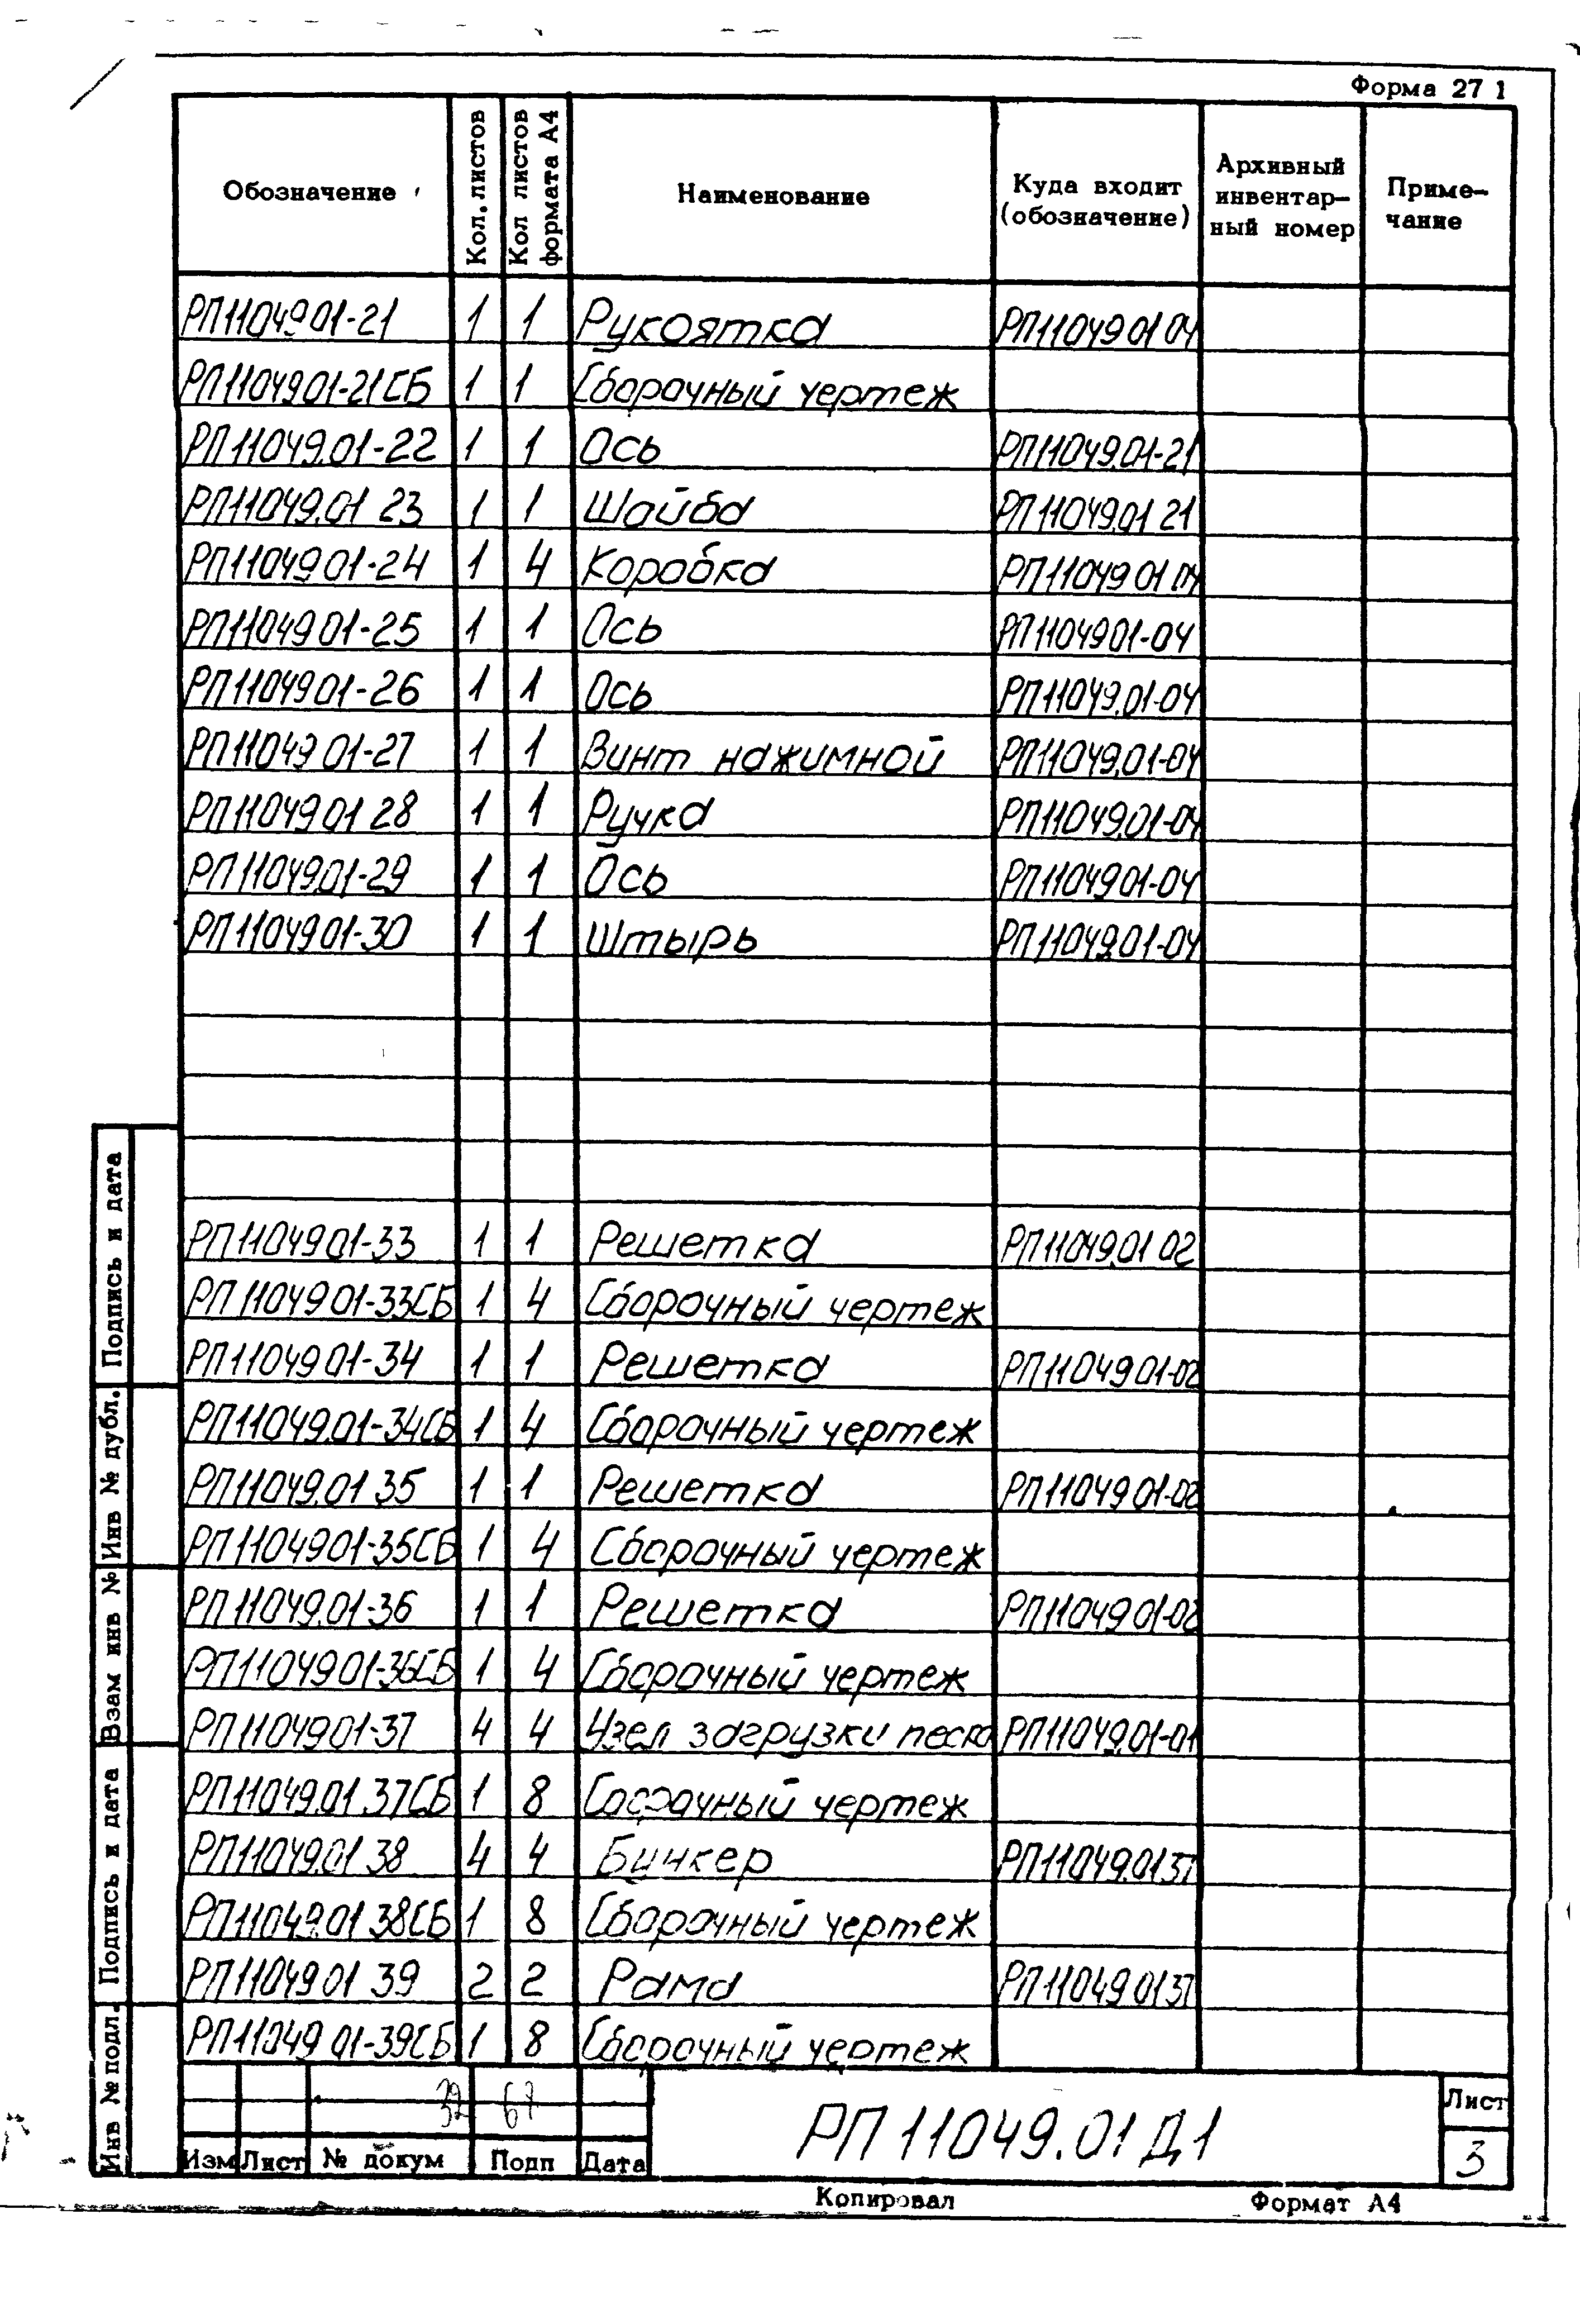 Форма 27 1
Обозначение Кол. листов Кол листов формата А4 Наименование Куда входит (обозначение) Архивный инвентар-ный номер Приме-чание
РП1104901-21 1 1 Рукоятка РП11049 01 04
РП1104901-21СБ 1 1 Сборочный чертеж
РП11049.01-22 1 1 Ось РП11049.01-21
РП11049.01 23 1 1 Шайба РП11049.01 21
РП11049 01-24 1 4 Коробка РП11049 01 04
РП11049 01-25 1 1 Ось РП1104901-04
РП1104901-26 1 1 Ось РП11049.01-04
РП11049 01-27 1 1 Винт нажимной РП11049.01-04
РП11049 01 28 1 1 Ручка РП11049.01-04
РП11049.01-29 1 1 Ось РП1104901-04
РП1104901-30 1 1 Штырь РП11049.01-04
РП1104901-33 1 1 Решетка РП11049.01 02
РП1104901-33СБ 1 4 Сборочный чертеж
РП11049 01-34 1 1 Решетка РП11049.01-02
РП11049.01-34СБ 1 4 Сборочный чертеж
РП11049.01 35 1 1 Решетка РП11049.01-02
РП1104901-35СБ 1 4 Сборочный чертеж
РП11049.01-36 1 1 Решетка РП11049 01-02
РП11049 01-36СБ 1 4 Сборочный чертеж
РП1104901-37 4 4 Узел загрузки песка РП11049.01-01
РП11049.01.37СБ 1 8 Сборочный чертеж
РП11049.01 38 4 4 Бункер РП11049.01 37
РП11049.01 38СБ 1 8 Сборочный чертеж
РП11049 01 39 2 2 Рама РП11049 01 37
РП11049 01-39СБ 1 8 Сборочный чертеж
32 67
Изм Лист № докум Подп Дата
РП 11049.01 Д1
Лист
3
Копировал Формат А4
Подпись и дата
Инв № дубл.
Взам инв №
Подпись и дата
Инв № подл.